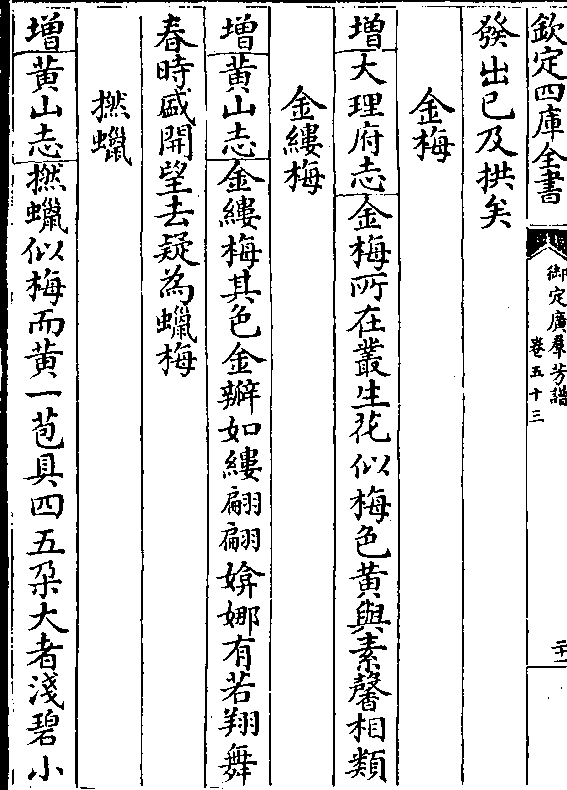 欽定四庫全書
御定廣羣芳譜
卷五十三
發出已及拱矣
金梅
增大理府志金梅所在叢生花似梅色黃與素馨相類
金縷梅
增黃山志金縷梅其色金瓣如縷翩翩婀娜有若翔舞
春時盛開望去疑為蠟梅
撚蠟
增黃山志撚蠟似梅而黃一苞具四五朶大者淺碧小